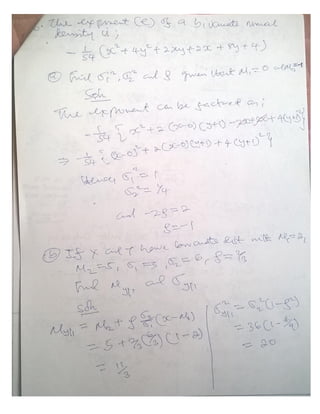 The exponent (e) of a bivariate normal
density is;
- 1/54 (x² + 4y² + 2xy + 2x + 8y + 4)
(a) Find σ₁², σ₂² and ρ given that M₁=0 and M₂=-1
Soln
The exponent can be factored as;
- 1/54 { x² + 2(x-0)(y+1) + 4(y+1)² }
⇒ - 1/54 { (x-0)² + 2(x-0)(y+1) + 4(y+1)² }
Hence, σ₁² = 1
σ₂² = 1/4
and -2ρ = 2
ρ = -1
(b) If X and Y have bivariate dist with M₁=2,
M₂=5, σ₁=3, σ₂=6, ρ=2/3
Find M y/1 and σ y/1
Soln
M y/1 = M₂ + ρ σ₂/σ₁ (x-M₁)
= 5 + 2/3 (6/3) (1-2)
= 11/3
σ² y/1 = σ₂² (1-ρ²)
= 36 (1- 4/9)
= 20